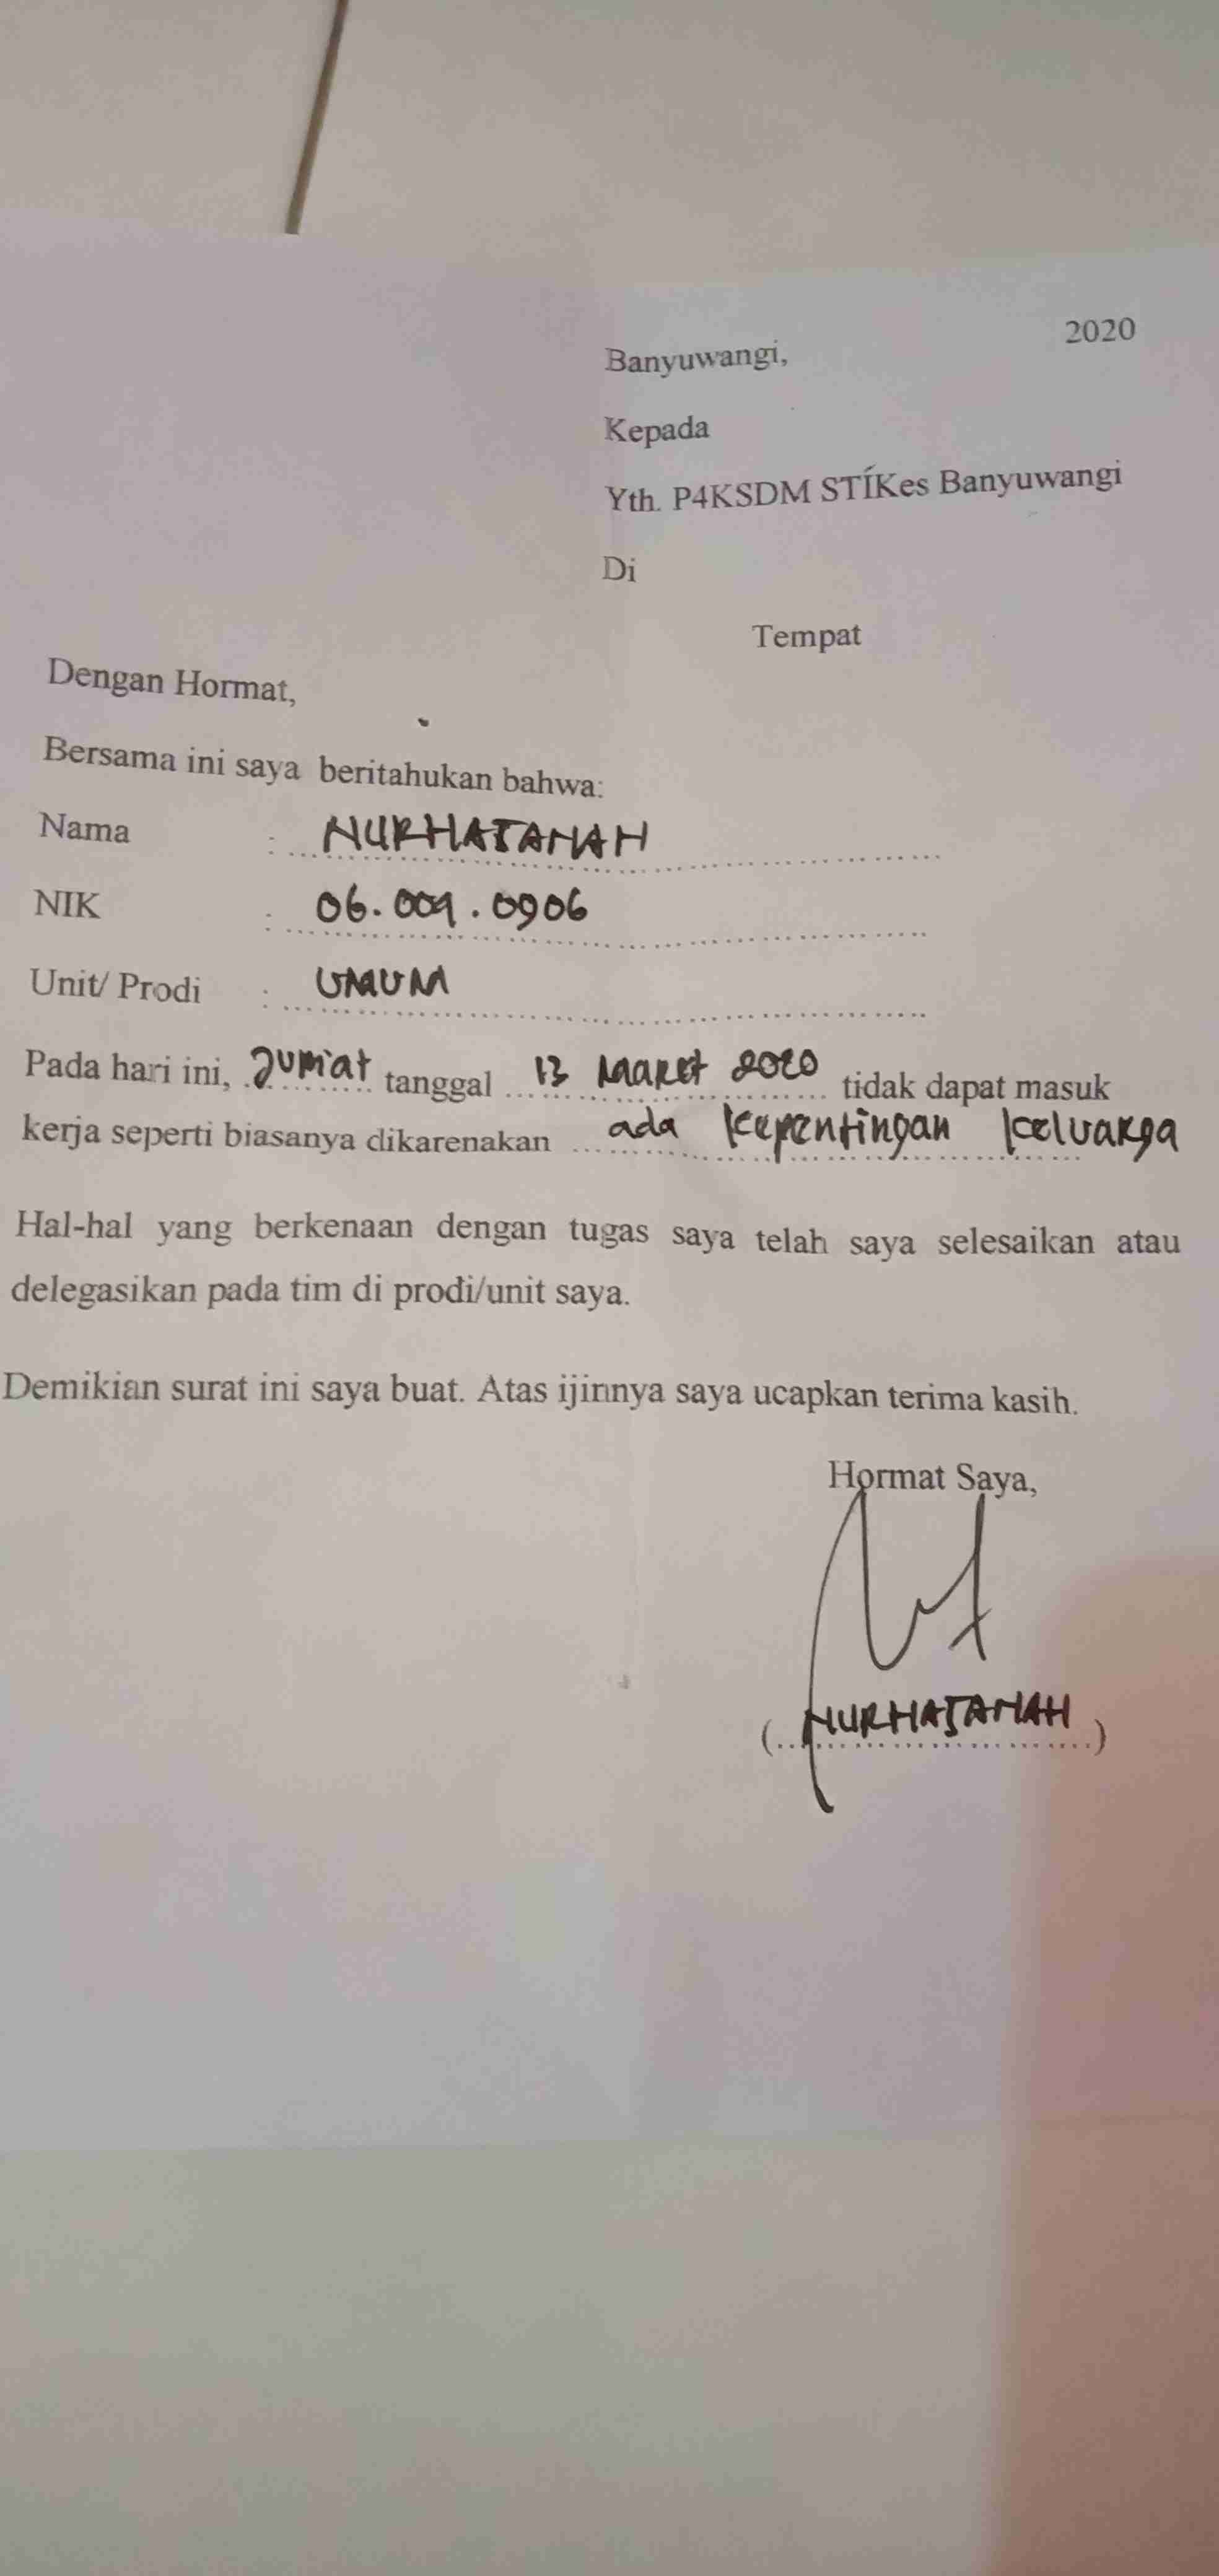 Banyuwangi, 2020
Kepada
Yth. P4KSDM STIKes Banyuwangi
Di
Tempat
Dengan Hormat,
Bersama ini saya beritahukan bahwa:
Nama : NURHASANAH
NIK : 06.009.0906
Unit/ Prodi : UMUM
Pada hari ini, Jum'at tanggal 13 Maret 2020 tidak dapat masuk
kerja seperti biasanya dikarenakan ada kepentingan keluarga
Hal-hal yang berkenaan dengan tugas saya telah saya selesaikan atau
delegasikan pada tim di prodi/unit saya.
Demikian surat ini saya buat. Atas ijinnya saya ucapkan terima kasih.
Hormat Saya,
(NURHASANAH)